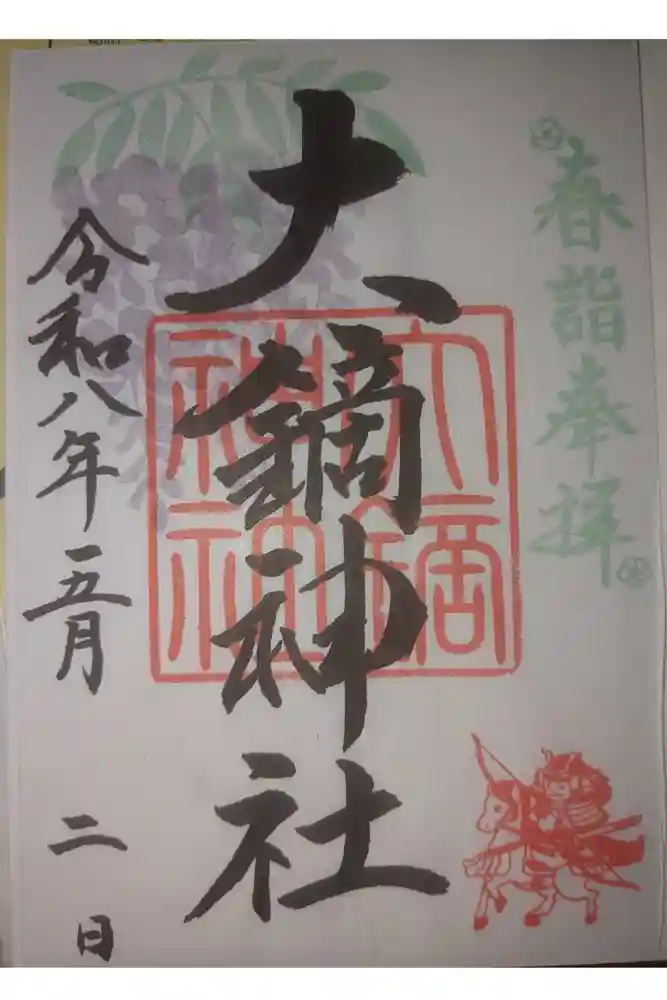 春詣奉拝
大鏑神社
大鏑
神社
令和八年五月二日